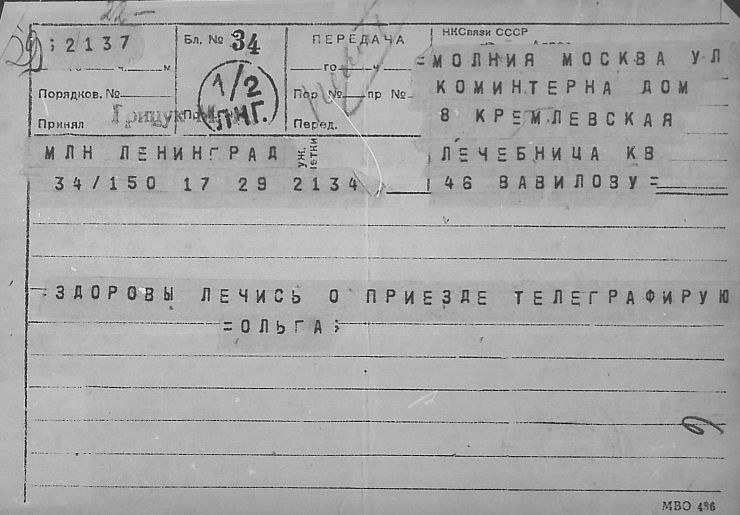 22—
2137
ч. м
Порядков. №
Принял
Грицук
Бл. № 34
1/2
ЛНГ.
ПЕРЕДАЧА
го ч
Пор № пр №
Перед.
НКСвязи СССР
=МОЛНИЯ МОСКВА УЛ
КОМИНТЕРНА ДОМ
8 КРЕМЛЕВСКАЯ
ЛЕЧЕБНИЦА КВ
46 ВАВИЛОВУ=
МЛН ЛЕНИНГРАД
34/150 17 29 2134
:ЗДОРОВЫ ЛЕЧИСЬ О ПРИЕЗДЕ ТЕЛЕГРАФИРУЮ
=ОЛЬГА;
МВО 436